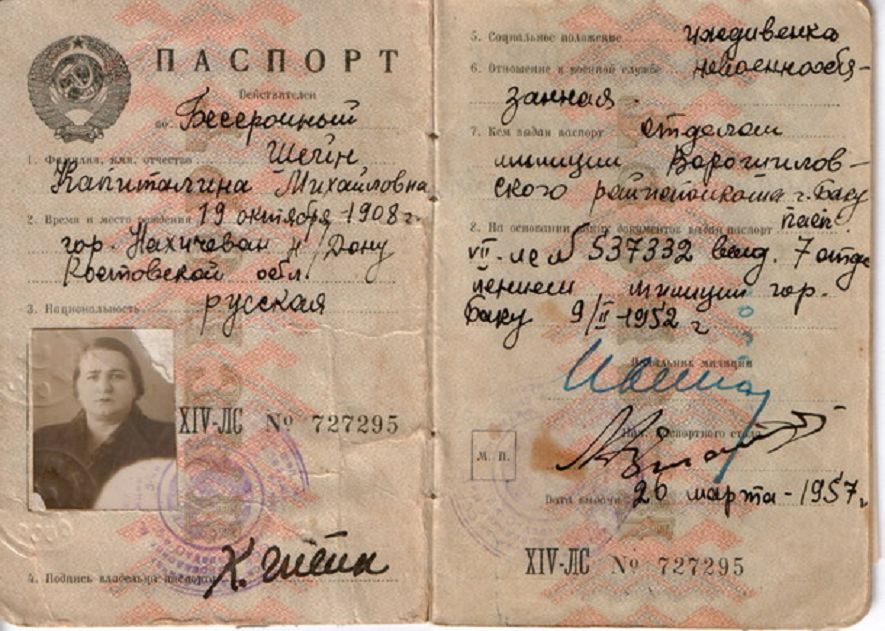 ПАСПОРТ
Действителен
по Бессрочный
1. Фамилия, имя, отчество Шейн
Капиталина Михайловна
2. Время и место рождения 19 октября 1908 г.
гор. Нахичеван н/Дону
Ростовской обл.
3. Национальность русская
XIV-ЛС № 727295
4. Подпись владельца паспорта К. Шейн
5. Социальное положение иждивенка
6. Отношение к военной службе невоеннообя-
занная.
7. Кем выдан паспорт отделом
милиции Ворошилов-
ского г. Баку
8. На основании каких документов выдан паспорт пасп.
VII-ЛС № 537332 выд. 7 отде
лением милиции гор.
Баку 9/II-1952 г
Начальник милиции
Нач. паспортного стола
М. П.
Дата выдачи 26 марта-1957 г
XIV-ЛС № 727295